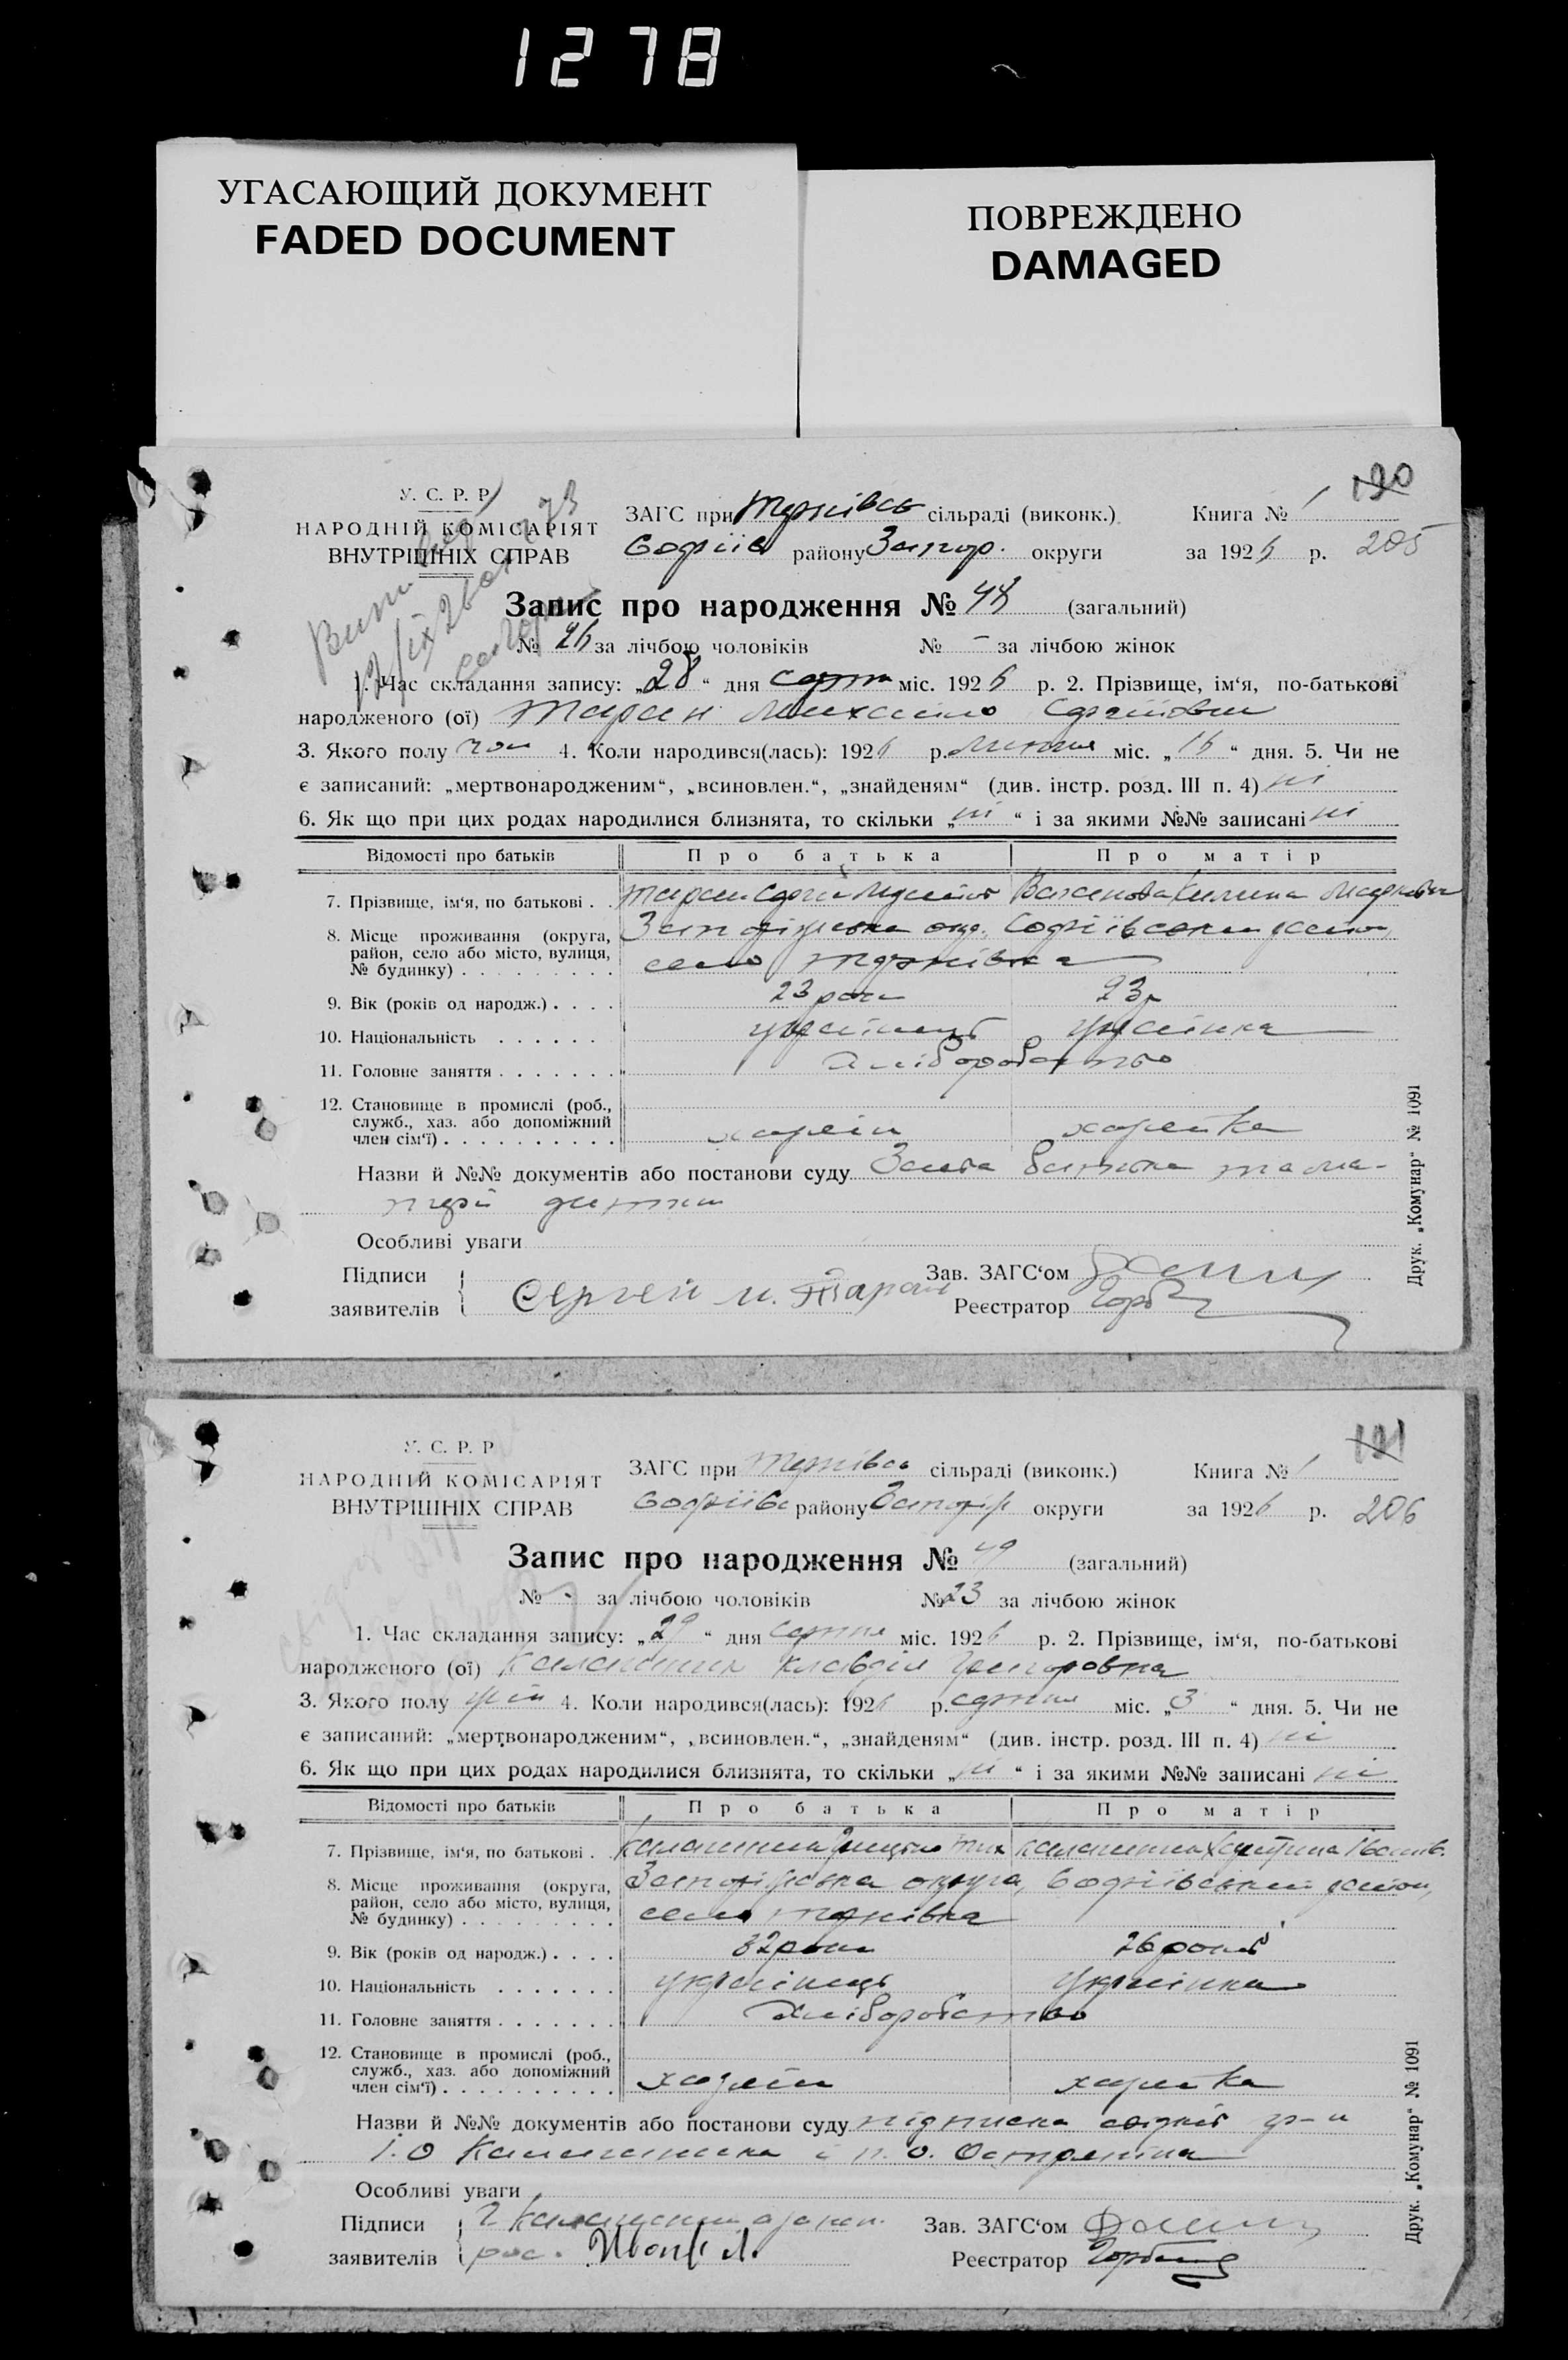 1278
УГАСАЮЩИЙ ДОКУМЕНТ
FADED DOCUMENT
ПОВРЕЖДЕНО
DAMAGED
120
У. С. Р. Р.
НАРОДНІЙ КОМІСАРІЯТ
ВНУТРІШНІХ СПРАВ
ЗАГС при Тернівсь сільраді (виконк.) Книга № 1
Софіїв району Запор. округи за 1926 р. 205
Запис про народження № 48 (загальний)
№ 26 за лічбою чоловіків № - за лічбою жінок
1. Час складання запису: „28“ дня серпн міс. 1926 р. 2. Прізвище, ім‘я, по-батькові
народженого (ої) Таран Михайло Сергійович
3. Якого полу чол 4. Коли народився(лась): 1926 р. Липня міс. „16“ дня. 5. Чи не
є записаний: „мертвонародженим“, „всиновлен.“, „знайденям“ (див. інстр. розд. III п. 4) ні
6. Як що при цих родах народилися близнята, то скільки „ні“ і за якими №№ записані ні
Відомості про батьків Про батька Про матір
7. Прізвище, ім‘я, по батькові . . Таран Сергій
8. Місце проживання (округа, Запорізька окр. Софіївський район,
район, село або місто, вулиця,
№ будинку) . . . . . . . . . село Тернівка
9. Вік (років од народж.) . . . . 23 роки 23 р
10. Національність . . . . . . українець українка
11. Головне заняття . . . . . . . хліборобство
12. Становище в промислі (роб.,
служб., хаз. або допоміжний
член сім‘ї) . . . . . . . . . . хазяїн хазяйка
Назви й №№ документів або постанови суду Заява батька та ма-
тері дитини
Особливі уваги
Підписи
заявителів Сергей М. Таран
Зав. ЗАГС‘ом
Реєстратор
Друк. „Комунар“ № 1091
121
У. С. Р. Р
НАРОДНІЙ КОМІСАРІЯТ
ВНУТРІШНІХ СПРАВ
ЗАГС при Тернівсь сільраді (виконк.) Книга № 1
Софіївс району Запоріз округи за 1926 р. 206
Запис про народження № 49 (загальний)
№ - за лічбою чоловіків № 23 за лічбою жінок
1. Час складання запису: „29“ дня серпня міс. 1926 р. 2. Прізвище, ім‘я, по-батькові
народженого (ої) Калашник Клавдія Григоровна
3. Якого полу жін 4. Коли народився(лась): 1926 р. серпня міс. „3“ дня. 5. Чи не
є записаний: „мертвонародженим“, „всиновлен.“, „знайденям“ (див. інстр. розд. III п. 4) ні
6. Як що при цих родах народилися близнята, то скільки „ні“ і за якими №№ записані ні
Відомості про батьків Про батька Про матір
7. Прізвище, ім‘я, по батькові .
8. Місце проживання (округа, Запорізька округа, Софіївський район,
район, село або місто, вулиця,
№ будинку) . . . . . . . . . село Тернівка
9. Вік (років од народж.) . . . . 32 роки 26 років
10. Національність . . . . . . . українець українка
11. Головне заняття . . . . . . . Хліборобство
12. Становище в промислі (роб.,
служб., хаз. або допоміжний
член сім‘ї) . . . . . . . . . . хазяїн хазяйка
Назви й №№ документів або постанови суду підписка свідків гр-н
Особливі уваги
Підписи
заявителів
Зав. ЗАГС‘ом
Реєстратор
Друк. „Комунар“ № 1091